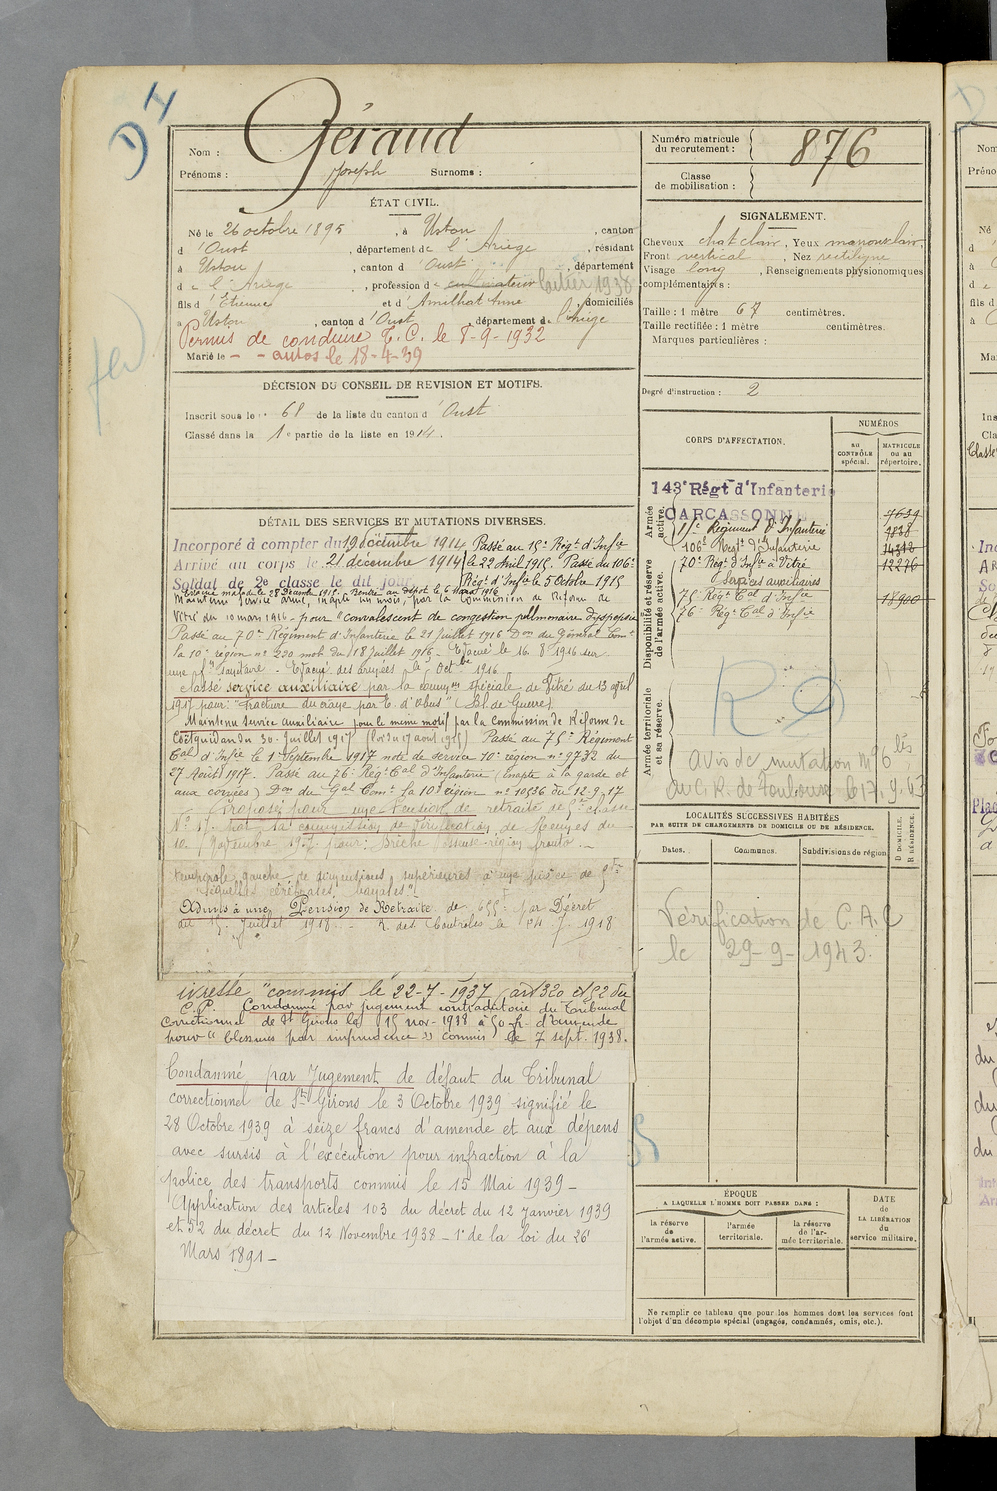 Nom : Géraud
Prénoms : Joseph Surnoms :
ÉTAT CIVIL.
Né le 26 octobre 1895, à Ustou, canton
d'Oust, département de l'Ariège, résidant
à Ustou, canton d'Oust, département
de l'Ariège, profession de cultivateur laitier 1938
fils d'Etienne et d'Amilhat Anne, domiciliés
à Ustou, canton d'Oust, département de l'Ariège
Permis de conduire T.C. le 8-9-1932
Marié le - - autos le 18-4-39
DÉCISION DU CONSEIL DE REVISION ET MOTIFS.
Inscrit sous le n° 68 de la liste du canton d'Oust
Classé dans la 1e partie de la liste en 1914.
DÉTAIL DES SERVICES ET MUTATIONS DIVERSES.
Incorporé à compter du 19 décembre 1914 Passé au 15e Régt d'Infie
Arrivé au corps le 21 décembre 1914 le 22 Avril 1915. Passé au 106e
Soldat de 2e classe le dit jour Régt d'Infie le 5 Octobre 1915
Evacué malade le 28 Décembre 1915. Rentré au dépôt le 6 1916
Maintenu service armé, inapte un mois, par la Commission de Réforme de
Vitré du 10 mars 1916 - pour "convalescent de congestion pulmonaire dyspepsie
Passé au 70e Régiment d'Infanterie le 21 Juillet 1916 Don du Général Comt
la 10e région n° 230 mob du 18 Juillet 1916 - Evacué le 16 8 1916 sur
une pf. Sanitaire - Evacué des armées le 5 Octbre 1916
Classé service auxiliaire par la common spéciale de Vitré du 13 avril
1917 pour: "Fracture du crane par E. d'obus" (Bl. de Guerre)
Maintenu service auxiliaire pour le même motif par la Commission de Réforme de
Coëtquidan du 30 Juillet 1917 (loi du 17 aout 1915) Passé au 75e Régiment
Cal d'Infie le 1er Septembre 1917 note de service 10e région n° 9732 du
27 Août 1917. Passé au 76e Régt Cal d'Infanterie (Inapte à la garde et
aux corvées) Don du Gal Comt la 10e région n° 10536 du 12-9-17
Proposé pour une Pension de retraite de 5me classe
par la commission de vérification de Rennes du
10 Novembre 1917 pour: Brèche osseuse région fronto
temporale gauche de dimensions supérieures à une pièce de 5fr
séquelles cérébrales, banales"
Admis à une Pension de Retraite de 655f par Décret
du 15 Juillet 1918 - R. des Contrôles le 24 7 1918
ivresse "commis le 22-7-1937 (art 320 et 52 du
C.P. Condamné par jugement contradictoire du Tribunal
Correctionnel de St Girons le 15 nov-1938 à 50 fr. d'amende
pour "blessures par imprudence" commis le 7 sept. 1938.
Condamné par Jugement de défaut du Tribunal
correctionnel de St Girons le 3 Octobre 1939 signifié le
28 Octobre 1939 à seize francs d'amende et aux dépens
avec sursis à l'exécution pour infraction à la
police des transports commis le 15 Mai 1939 -
Application des articles 103 du décret du 12 Janvier 1939
et 52 du décret du 12 Novembre 1938 - 1er de la loi du 26
Mars 1891 -
Numéro matricule du recrutement : 876
Classe de mobilisation :
SIGNALEMENT.
Cheveux chat clair, Yeux marrons clair,
Front vertical, Nez rectiligne
Visage long, Renseignements physionomiques
complémentaires :
Taille : 1 mètre 67 centimètres.
Taille rectifiée : 1 mètre centimètres.
Marques particulières :
Degré d'instruction : 2
CORPS D'AFFECTATION.
NUMÉROS
au CONTRÔLE spécial.
MATRICULE ou au répertoire.
Armée active.
143e Régt d'Infanterie
CARCASSONNE 7639
15e Régiment d'Infanterie 7838
106e Regt d'Infanterie 14312
Disponibilité et réserve de l'armée active.
70e Regt d'Infie à Vitré 12236
Services auxiliaires
75e Régt Cal d'Infie 18900
76e Régt Cal d'Infie
Armée territoriale et sa réserve.
RD
Avis de mutation n° 6 bis
du C.R. de Toulouse le 17.9.63
LOCALITÉS SUCCESSIVES HABITÉES
PAR SUITE DE CHANGEMENTS DE DOMICILE OU DE RÉSIDENCE.
D DOMICILE.
R RÉSIDENCE.
Dates. Communes. Subdivisions de région
Vérification de C.A.C
le 29-9-1943.
ÉPOQUE
A LAQUELLE L'HOMME DOIT PASSER DANS :
la réserve de l'armée active.
l'armée territoriale.
la réserve de l'armée territoriale.
DATE de LA LIBÉRATION du service militaire.
Ne remplir ce tableau que pour les hommes dont les services font
l'objet d'un décompte spécial (engagés, condamnés, omis, etc.).